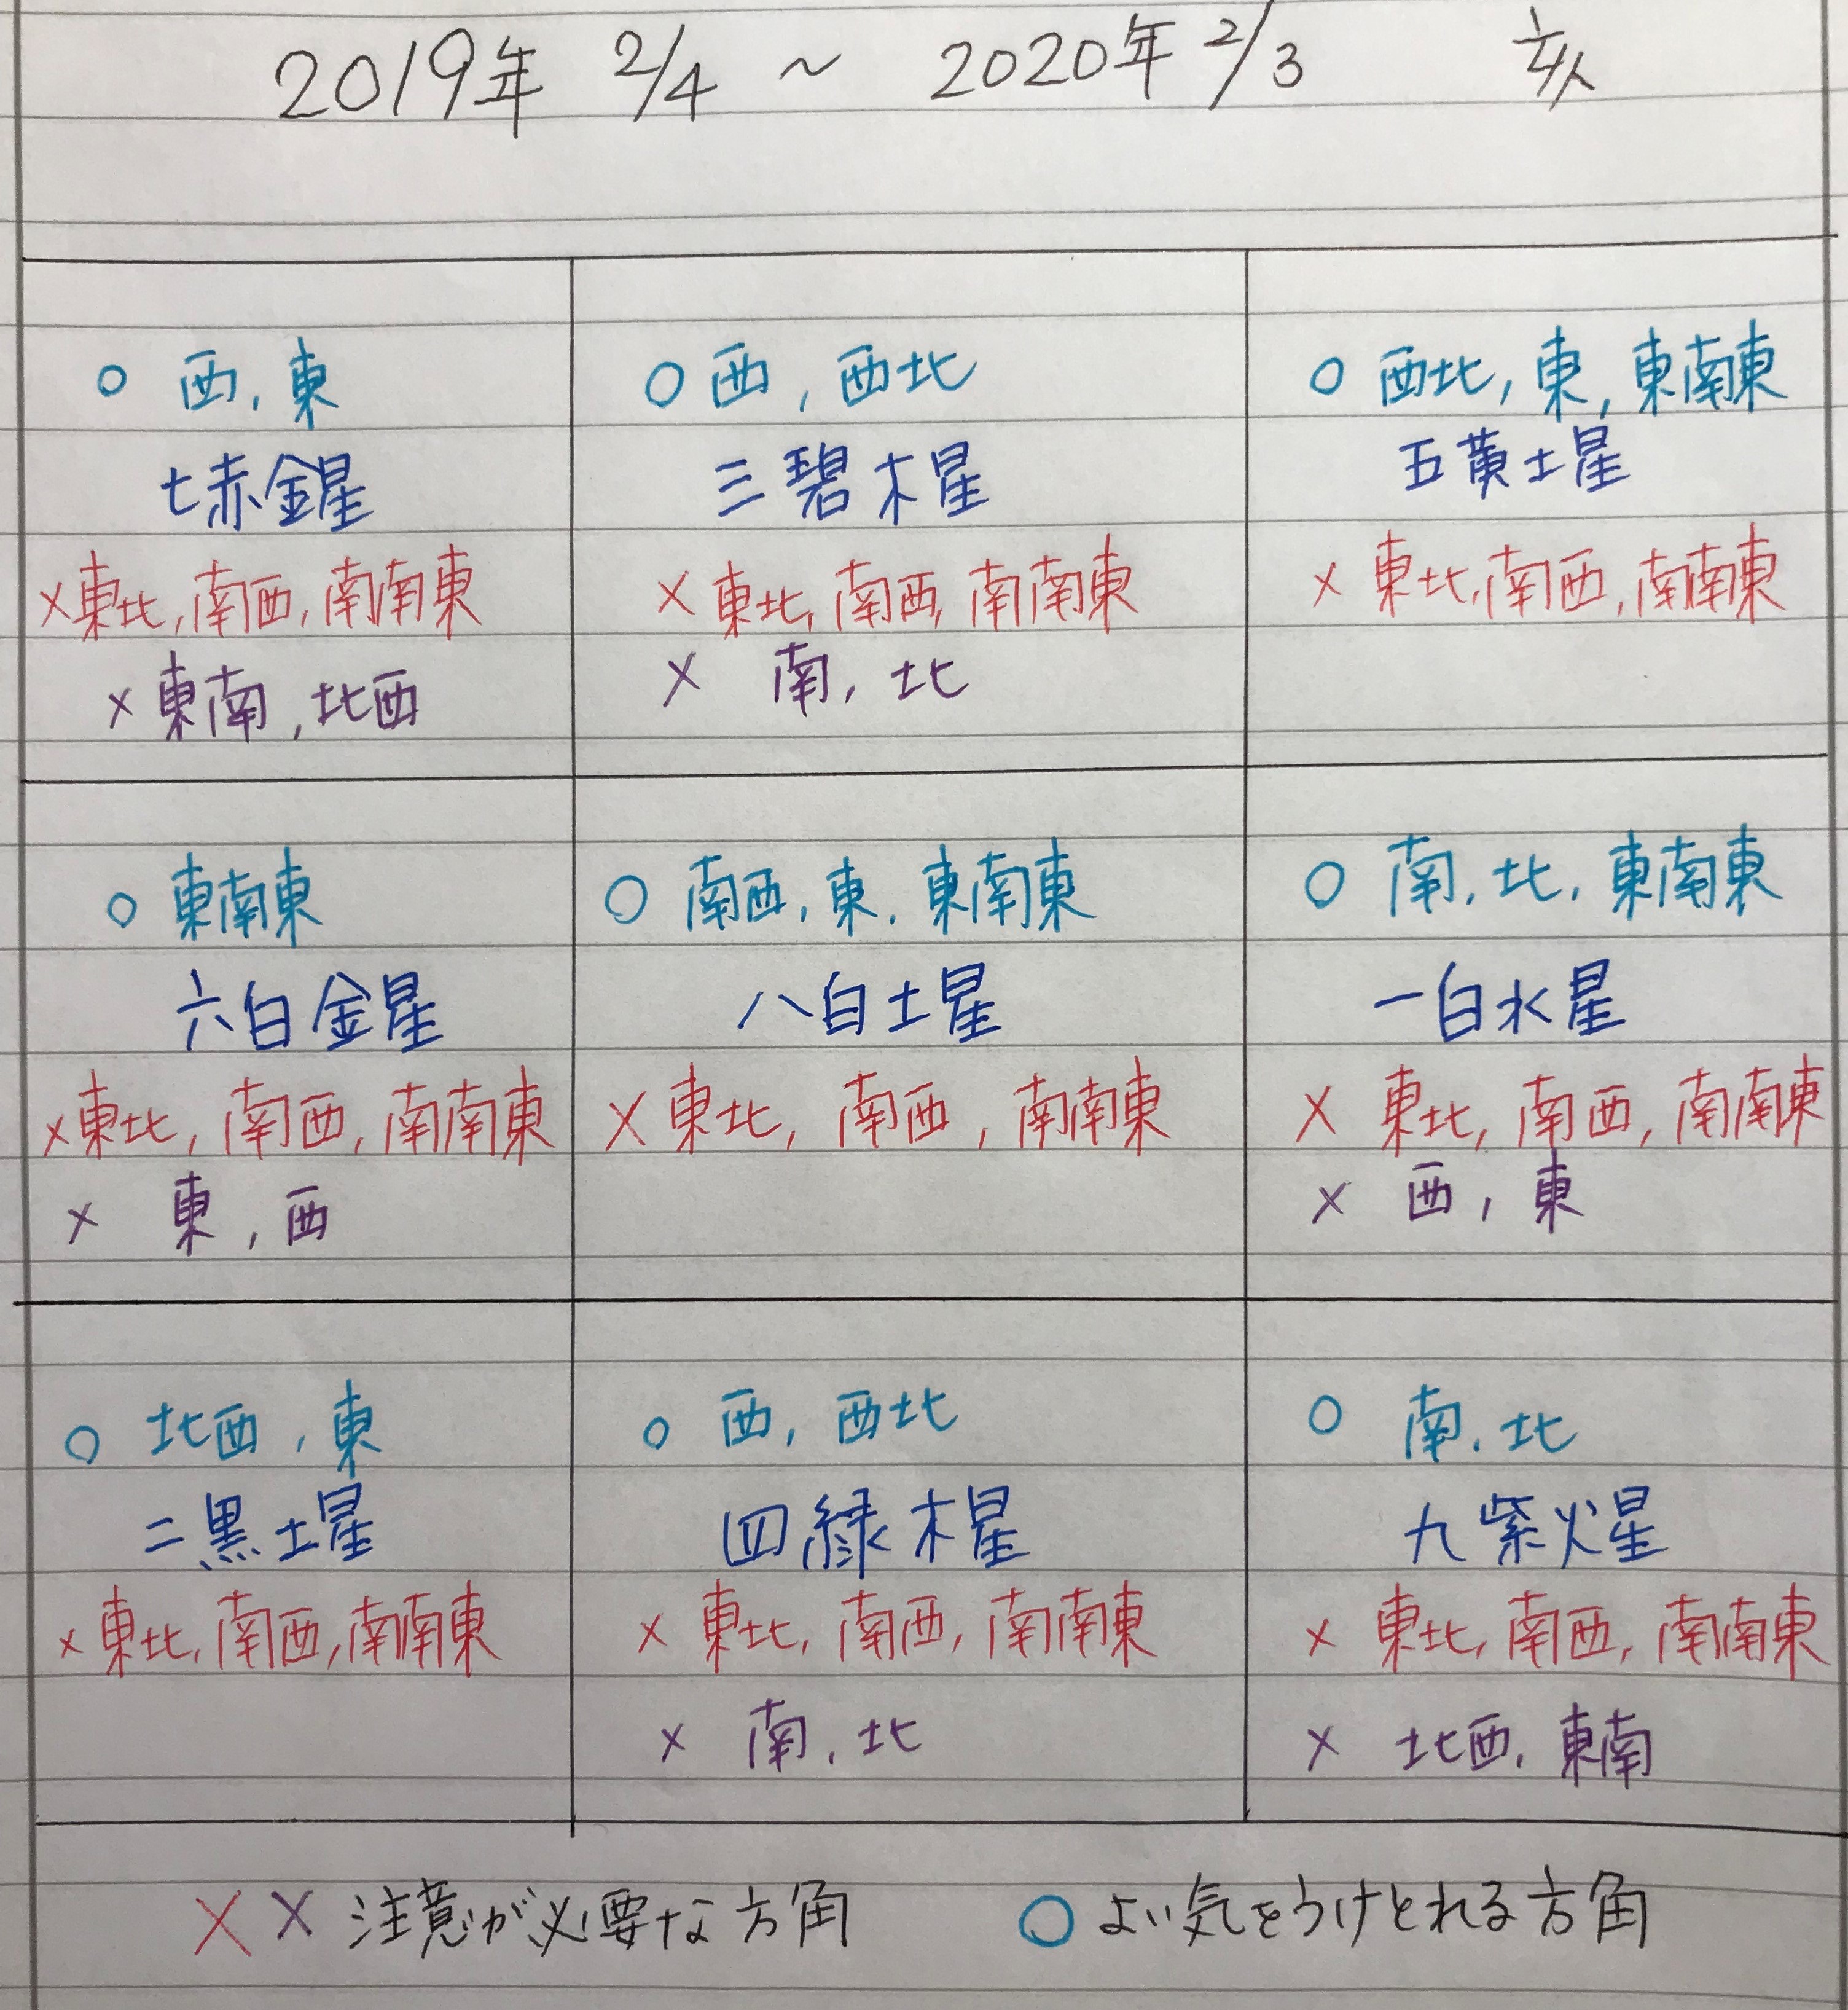 2019年 2/4 ～ 2020年 2/3 亥
○ 西, 東
七赤金星
×東北, 南西, 南南東
× 東南, 北西
○ 西, 西北
三碧木星
× 東北, 南西, 南南東
× 南, 北
○ 西北, 東, 東南東
五黄土星
× 東北, 南西, 南南東
○ 東南東
六白金星
×東北, 南西, 南南東
× 東, 西
○ 南西, 東, 東南東
八白土星
× 東北, 南西, 南南東
○ 南, 北, 東南東
一白水星
× 東北, 南西, 南南東
× 西, 東
○ 北西, 東
二黒土星
× 東北, 南西, 南南東
○ 西, 西北
四緑木星
× 東北, 南西, 南南東
× 南, 北
○ 南, 北
九紫火星
× 東北, 南西, 南南東
× 北西, 東南
×× 注意が必要な方角 ○ よい気をうけとれる方角